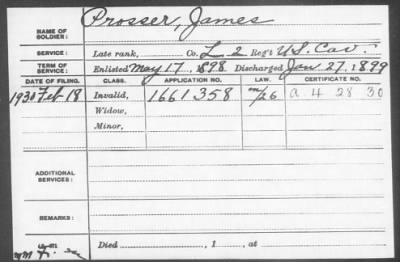 NAME OF SOLDIER: Prosser, James
SERVICE: Late rank, Co. L 2 Reg't U.S. Cav.
TERM OF SERVICE: Enlisted May 17, 1898 Discharged Jan. 27, 1899
DATE OF FILING. CLASS. APPLICATION NO. LAW. CERTIFICATE NO.
1930 Feb 18 Invalid, 1661358 a 4 28 30
Widow,
Minor,
ADDITIONAL SERVICES:
REMARKS:
Died , 1 , at